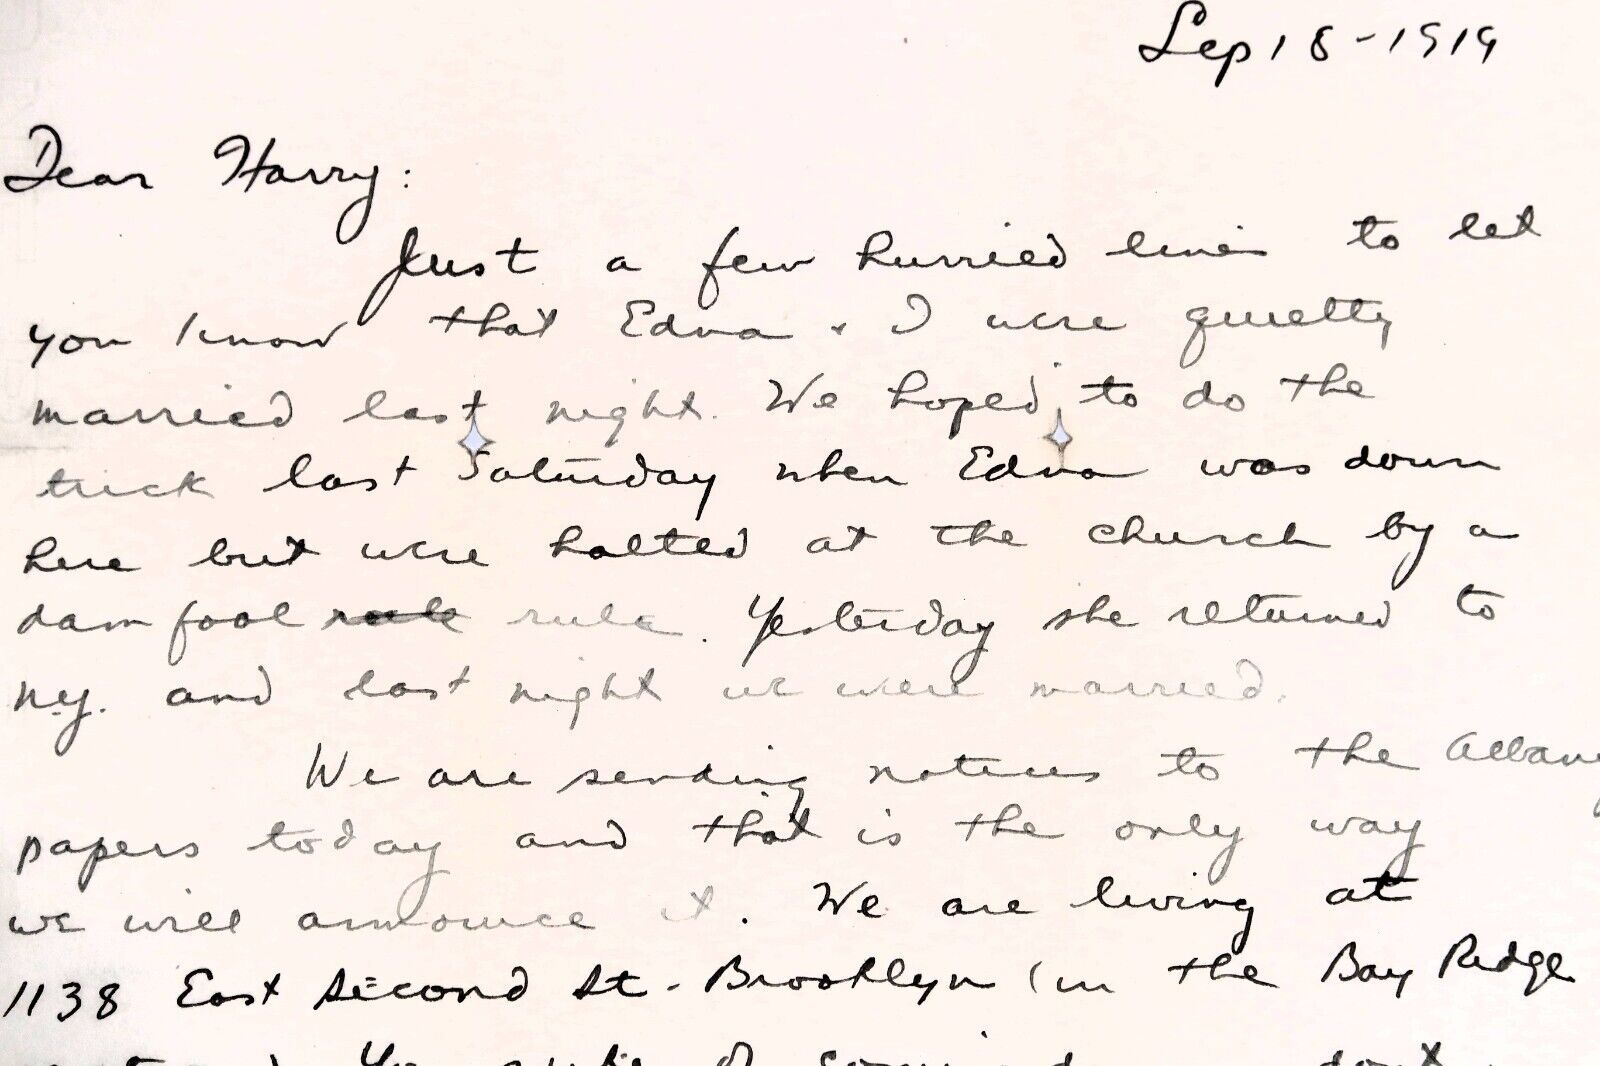 Sep 18 - 1919
Dear Harry:
Just a few hurried lines to let
you know that Edna & I were quietly
married last night. We hoped, to do the
trick last Saturday when Edna was down
here but were halted at the church by a
dam fool rule. Yesterday she returned to
N.Y. and last night we were married.
We are sending notices to the Albany
papers today and that is the only way
we will announce it. We are living at
1138 East Second St - Brooklyn (in the Bay Ridge